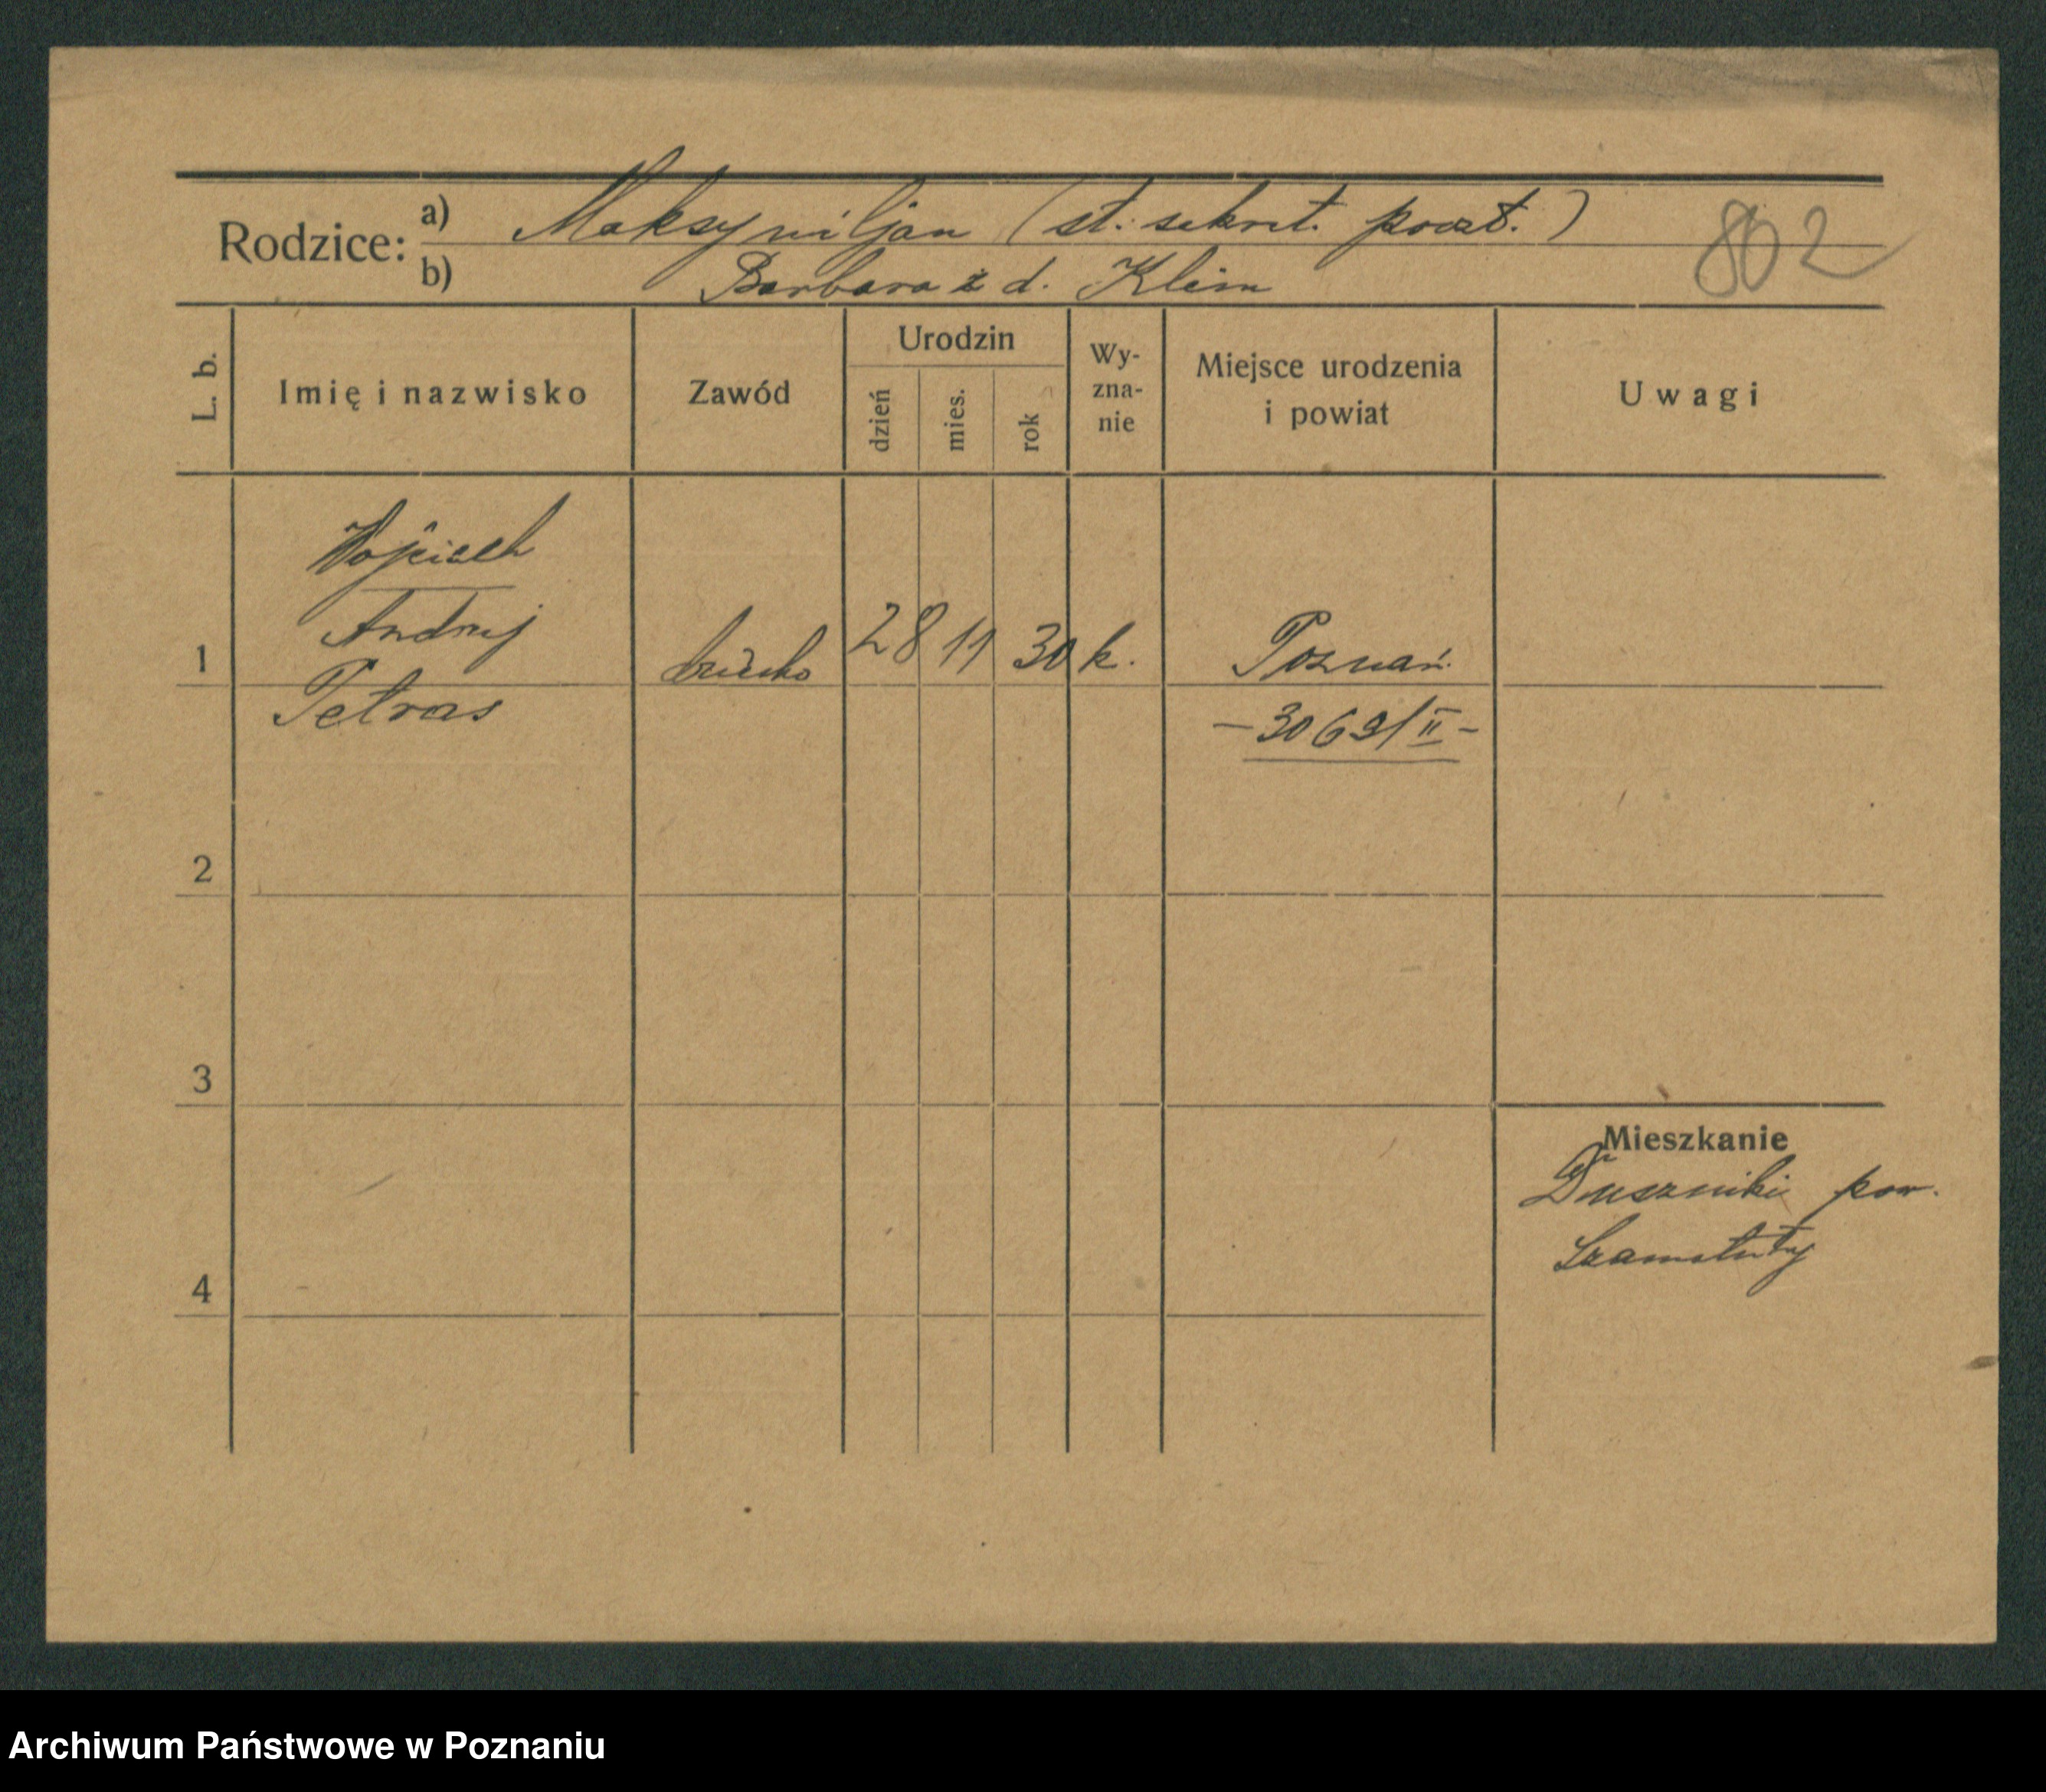 Rodzice: a) Maksymiljan (st. sekret. poczt.)
b) Barbara z d. Klem
802
L. b.
Imię i nazwisko
Zawód
Urodzin
dzień
mies.
rok
Wy-
zna-
nie
Miejsce urodzenia
i powiat
Uwagi
Wojciech
Andrzej
1
Petras
dziecko
28 11 30 k.
Poznań
- 3069/II -
2
3
4
Mieszkanie
Duszniki pow.
Szamotuły
Archiwum Państwowe w Poznaniu